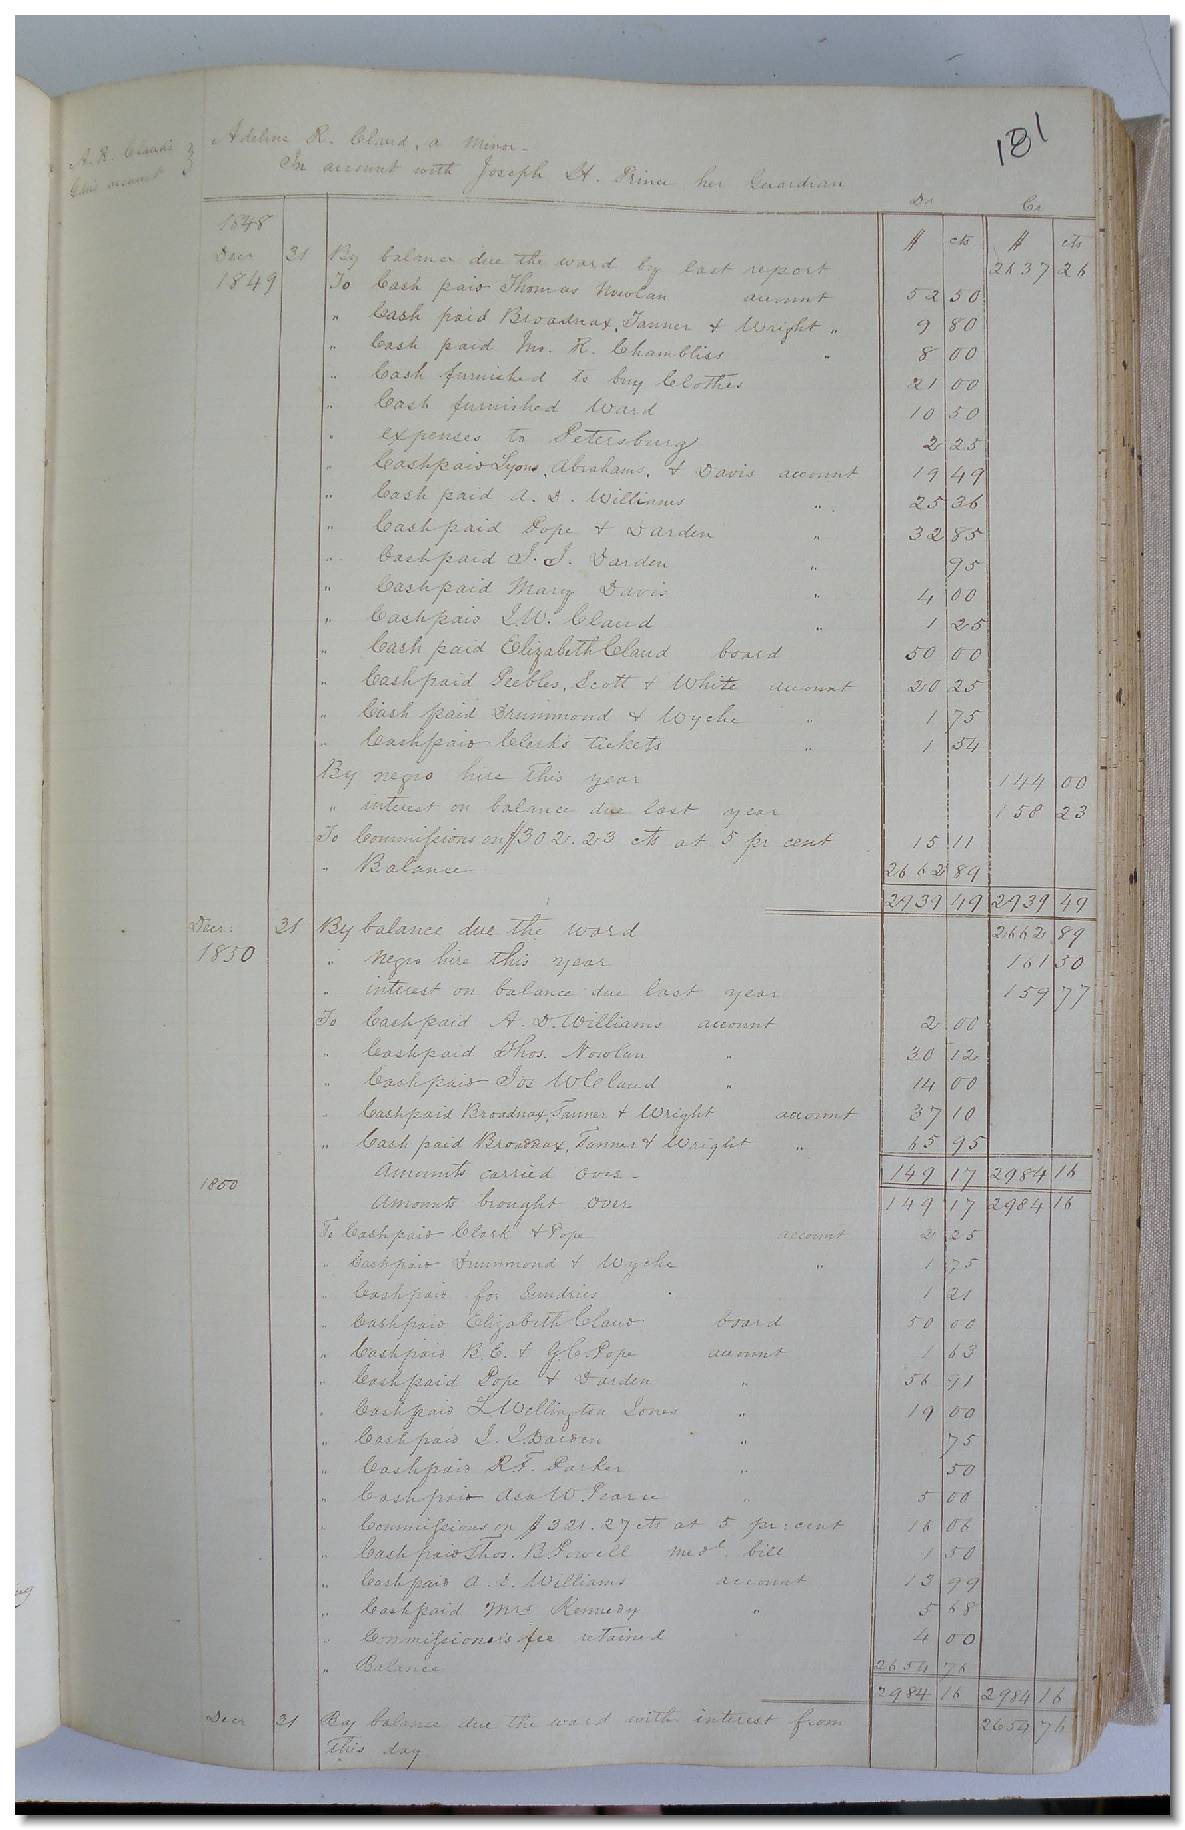 181
A. R. Claud's
Gdn's account
Adeline R. Claud, a minor
In account with Joseph H. Prince her Guardian
Dr Cr
1848 $ cts $ cts
Decr 31 By balance due the ward by last report 2637 26
1849 To Cash paid Thomas Nowlan account 52 50
" Cash paid Broadnax, Tanner & Wright " 9 80
" Cash paid Jno. R. Chambliss " 8 00
" Cash furnished to buy Clothes 21 00
" Cash furnished Ward 10 50
" expenses to Petersburg 2 25
" Cash paid Lyons, Abrahams, & Davis account 19 49
" Cash paid A. D. Williams " 25 36
" Cash paid Pope & Darden " 32 85
" Cash paid J. J. Darden " 95
" Cash paid Mary Davis " 4 00
" Cash paid J. W. Claud " 1 25
" Cash paid Elizabeth Claud board 50 00
" Cash paid Peebles, Scott & White account 20 25
" Cash paid Drummond & Wyche " 1 75
" Cash paid Clerk's tickets " 1 54
By negro hire this year 144 00
" interest on balance due last year 158 23
To Commissions on $302.23 cts at 5 pr cent 15 11
" Balance 2662 89
2939 49 2939 49
Decr: 31 By balance due the ward 2662 89
1850 " negro hire this year 161 50
" interest on balance due last year 159 77
To Cash paid A. D. Williams account 2 00
" Cash paid Thos. Nowlan " 30 12
" Cash paid Jos W Claud " 14 00
" Cash paid Broadnax, Tanner & Wright account 37 10
" Cash paid Broadnax, Tanner & Wright " 65 95
Amounts carried over 149 17 2984 16
1850 Amounts brought over 149 17 2984 16
To Cash paid Clark & Pope account 2 25
" Cash paid Drummond & Wyche " 1 75
" Cash paid for Sundries 1 21
" Cash paid Elizabeth Claud board 50 00
" Cash paid B. C. & G. C. Pope account 1 63
" Cash paid Pope & Darden " 56 91
" Cash paid L Wellington Jones " 19 00
" Cash paid J. J. Darden " 75
" Cash paid R. F. Parker " 50
" Cash paid Asa W. Pearce " 5 00
" Commissions on $321.27 cts at 5 pr: cent 16 06
" Cash paid Thos. B. Powell medl. bill 1 50
" Cash paid A. D. Williams account 13 99
" Cash paid Mrs Kennedy " 5 68
" Commissioner's fee retained 4 00
" Balance 2654 76
2984 16 2984 16
Decr 31 By balance due the ward with interest from 2654 76
this day